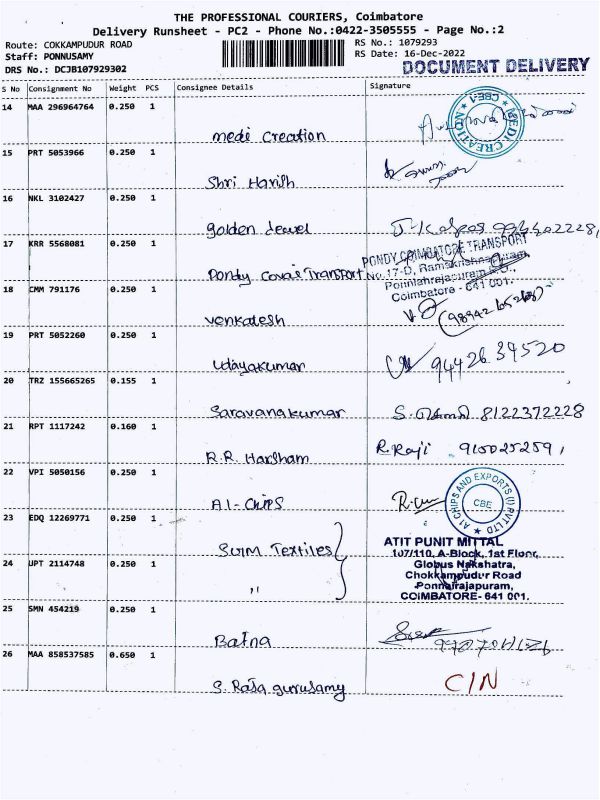 THE PROFESSIONAL COURIERS, Coimbatore
Delivery Runsheet - PC2 - Phone No.:0422-3505555 - Page No.:2
Route: COKKAMPUDUR ROAD
RS No.: 1079293
Staff: PONNUSAMY
RS Date: 16-Dec-2022
DRS No.: DCJB107929302
DOCUMENT DELIVERY
S No Consignment No Weight PCS Consignee Details Signature
14 MAA 296964764 0.250 1
medi Creation
MEDI CREATION CBE-1
15 PRT 5053966 0.250 1
Shri Harish
16 NKL 3102427 0.250 1
golden Jewel
17 KRR 5568081 0.250 1
Pondy Covai Transport
PONDY COIMBATORE TRANSPORT
No.17-D, Ramakrishnapuram
Coimbatore - 641 001.
18 CMM 791176 0.250 1
venkatesh
19 PRT 5052260 0.250 1
Udayakumar 9442634520
20 TRZ 155665265 0.155 1
Saravanakumar S. 8122372228
21 RPT 1117242 0.160 1
R.R. Harsham R. Raji
22 VPI 5050156 0.250 1
A1-Chips
A1 CHIPS AND EXPORTS (I) PVT LTD CBE
23 EDQ 12269771 0.250 1
Textiles
ATIT PUNIT MITTAL
107/110, A-Block, 1st Floor,
Globus Nakshatra,
24 UPT 2114748 0.250 1
Chokkampudur Road
Ponnairajapuram,
,,
COIMBATORE- 641 001.
25 SMN 454219 0.250 1
26 MAA 858537585 0.650 1
S. Raja gurusamy C/N